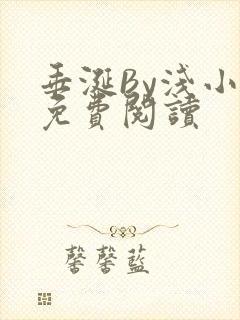 垂涎By淺小
免費閱讀
馨馨藍